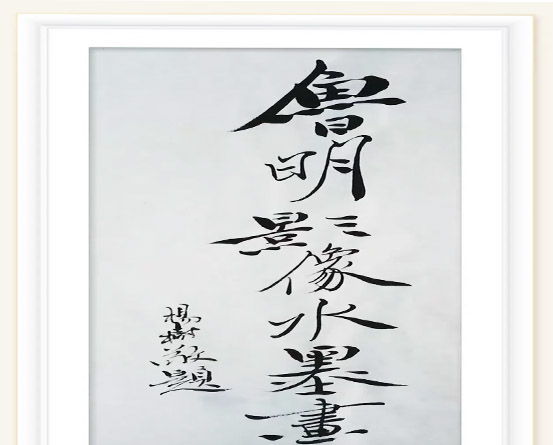 魯明影像水墨畫
楊樹敬題